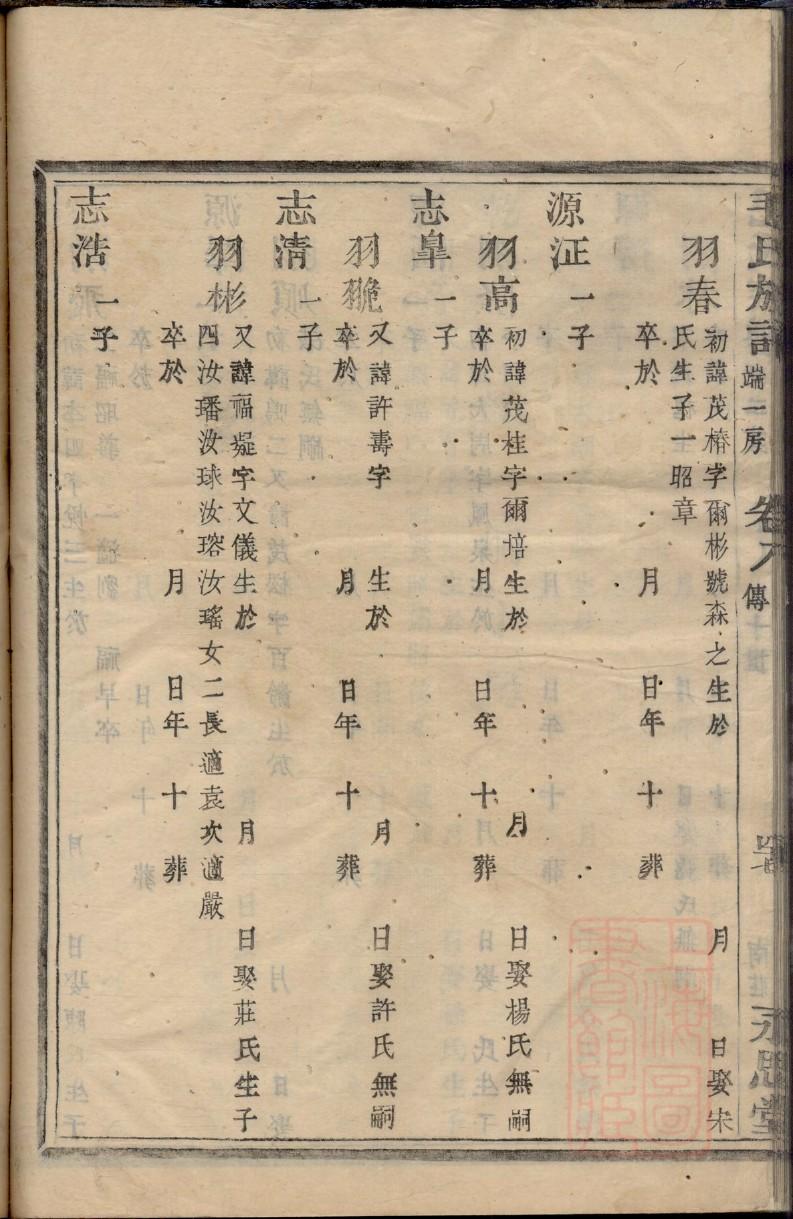 毛氏族譜 端一房 卷八 傳 四七 永思堂
羽春 初諱茂椿字爾彬號森之生於 月 日娶宋
氏生子一昭章
卒於 月 日年 十 葬
源沚 一子
羽高 初諱茂桂字爾培生於 月 日娶楊氏無嗣
卒於 月 日年 十 葬
志皐 一子
羽 又諱許壽字 生於 月 日娶許氏無嗣
卒於 月 日年 十 葬
志清 一子
羽彬 又諱福凝字文儀生於 月 日娶莊氏生子
四汝璠汝球汝瑢汝瑤女二長適袁次適嚴
卒於 月 日年 十 葬
志浩 一子